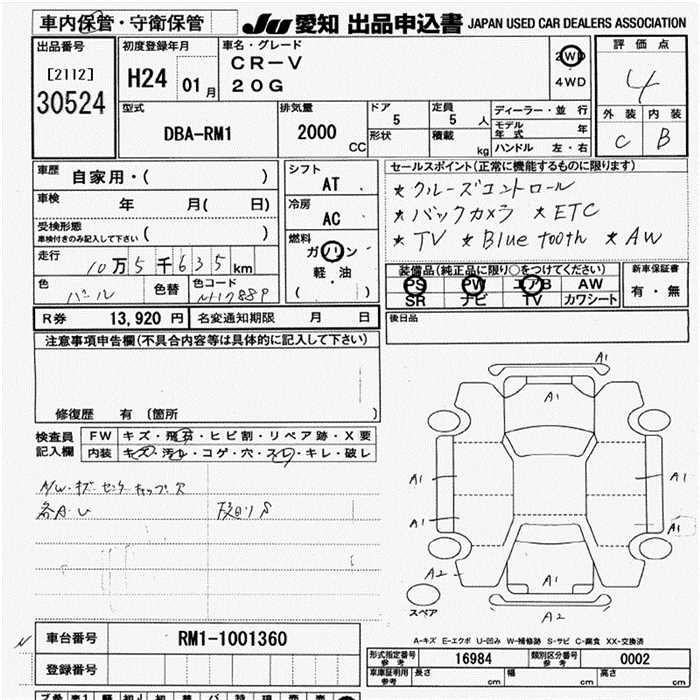 車内保管・守衛保管 JU 愛知 出品申込書 JAPAN USED CAR DEALERS ASSOCIATION
出品番号 初度登録年月 車名・グレード 評価点
[2112] H24 01月 CR-V 2WD
30524 20G 4WD 4
型式 排気量 ドア 定員 ディーラー・並行 外装 内装
DBA-RM1 2000 CC 5 5人 モデル年式 年 C B
形状 積載 kg ハンドル 左・右
車歴 自家用・( ) シフト セールスポイント(正常に機能するものに限ります)
AT ★クルーズコントロール
車検 年 月( 日) 冷房 ★バックカメラ ★ETC
AC ★TV ★Blue tooth ★AW
受検形態 ( )
車検付きのみ記入して下さい
燃料
走行 10万5千635km ガソリン 装備品(純正品に限り○をつけてください) 新車保証書
軽・油 PS PW エアB AW 有・無
色 パール 色替 色コード NH788P ( ) SR ナビ TV カワシート
R券 13,920円 名変通知期限 月 日 後日品
注意事項申告欄(不具合内容等は具体的に記入して下さい)
修復歴 有 (箇所 )
検査員 FW キズ・飛石・ヒビ割・リペア跡・X要
記入欄 内装 キズ・汚れ・コゲ・穴・スレ・キレ・破レ
A/W・キズ センターキャップ欠
各A・U
A1
A1
A1 A1
A1 A1
A2 A1
スペア A2
A-キズ E-エクボ U-凹み W-補修跡 S-サビ C-腐食 XX-交換済
車台番号 RM1-1001360
形式指定番号 参考 16984 類別区分番号 参考 0002
登録番号 車庫証明用 参考 長さ cm 幅 cm 高さ cm